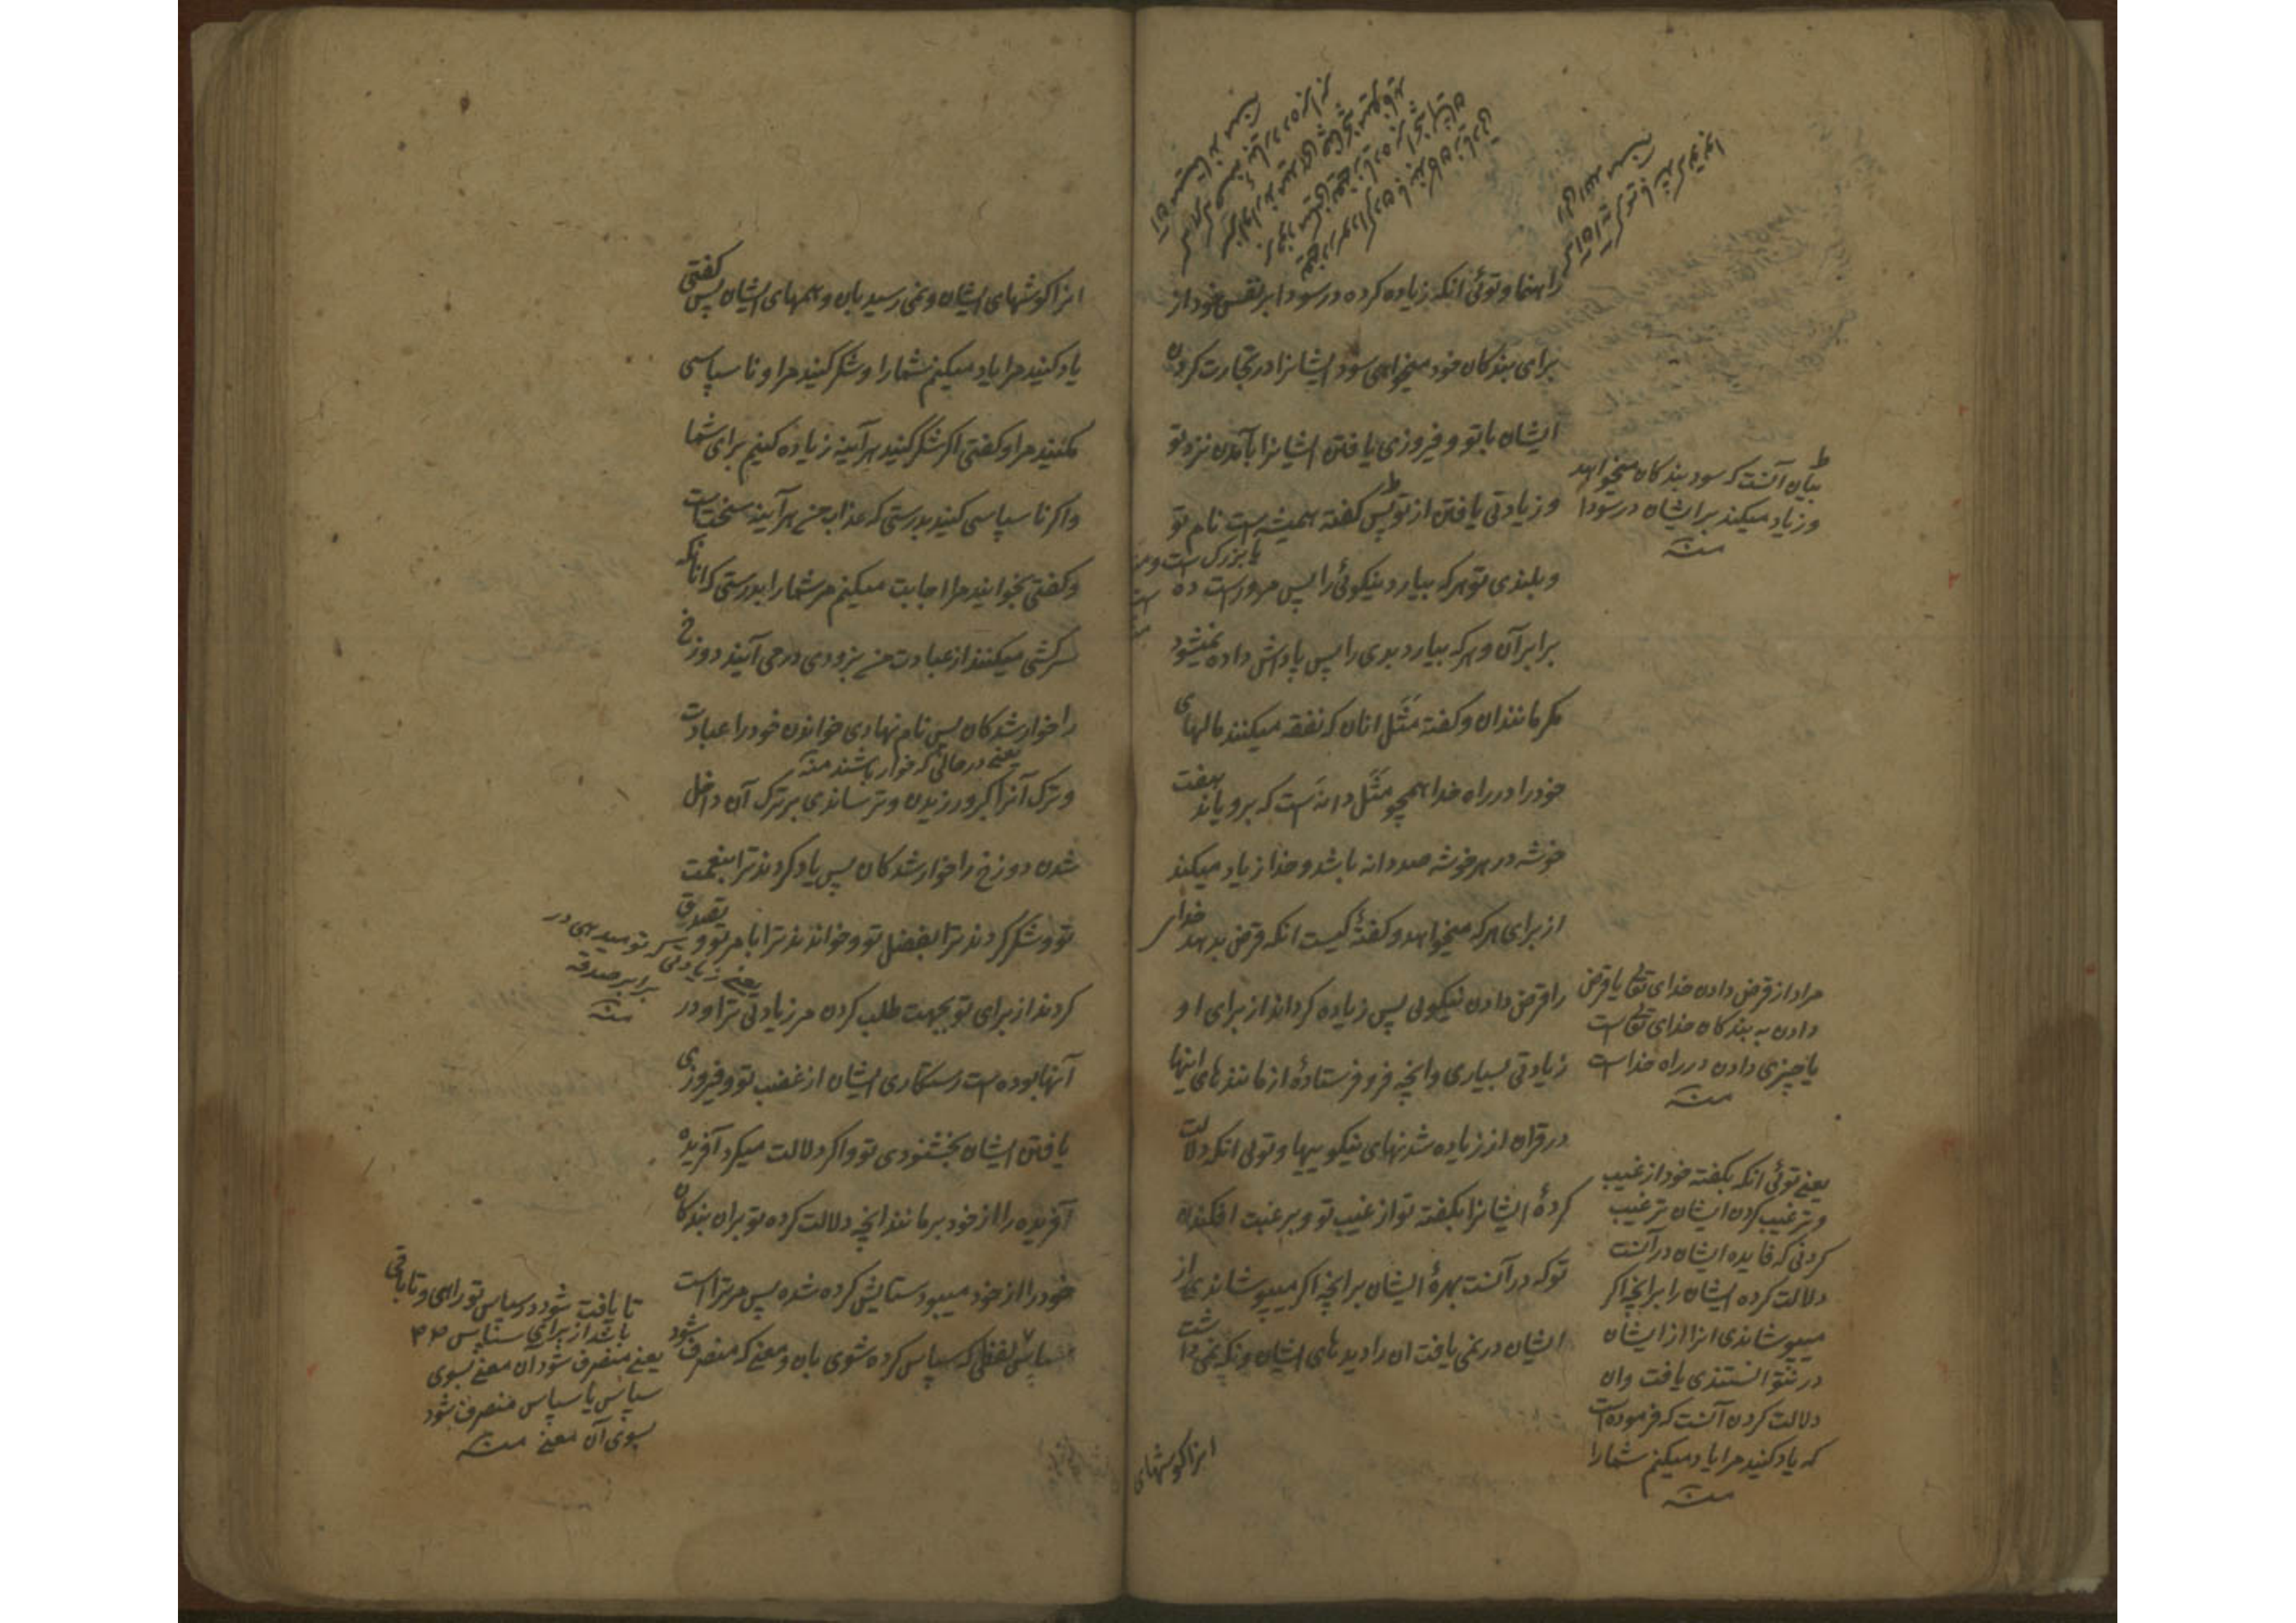 راهنما و توئی انکه زیاده کرده در سودا بر نفس خود از
برای بندکان خود میخواهی سود ایشانرا در تجارت کردن
ایشان با تو و فیروزی یافتن ایشانرا بآمدن نزد تو
و زیادتی یافتن از تو پس کفته همیشه است نام تو
یا بزرک است و
و بلندی تو هرکه بیارد نیکوئی را پس مر وراست ده
برابر آن و هرکه بیارد بدی را پس پاداش داده نمیشود
مکر مانند ان و کفته مَثَل انان که نفقه میکنند مالهای
خود را در راه خدا همچو مَثَل دانه است که برویاند هفت
خوشه در هر خوشه صد دانه باشد و خدا زیاد میکند
از برای هرکه میخواهد و کفتهٔ کیست انکه قرض بدهد خدای
را قرض دادن نیکوئی پس زیاده کرداند از برای او
زیادتی بسیاری و انچه فرو فرستادهٔ از مانندهای اینها
در قران از زیاده شدنهای نیکوییها و توئی انکه دلالت
کردهٔ ایشانرا بکفته تو از غیب تو و برغبت افکندن
تو که در آنست بهرهٔ ایشان بر انچه اکر میپوشاندی از
ایشان در نمی یافت ان را دیدهای ایشان و نکه نمی داشت
انرا کوشهای
بیان آنست که سود بندکان میخواهد
و زیاد میکند بر ایشان در سودا
منه
مراد از قرض دادن خدای تعالی یا قرض
دادن به بندکان خدای تعالی است
یا چیزی دادن در راه خداست
منه
یعنے توئی انکه بکفته خود از غیب
و ترغیب کردن ایشان ترغیب
کردنی که فایده ایشان در آنست
دلالت کرده ایشان را بر انچه اکر
میپوشاندی انرا از ایشان
در نتوانستندی یافت و ان
دلالت کردن آنست که فرموده است
که یاد کنید مرا یاد میکنم شما را
منه
انرا کوشهای ایشان و نمی رسید بان وهمهای ایشان پس کفتی
یاد کنید مرا یاد میکنم شما را و شکر کنید مرا و نا سپاسی
مکنید مرا و کفتی اکر شکر کنید هر آینه زیاده کنیم برای شما
و اکر نا سپاسی کنید بدرستی که عذاب من هر آینه سخت است
و کفتی بخوانید مرا اجابت میکنم مر شما را بدرستی که انانکه
سرکشی میکنند از عبادت من بزودی در می آیند دوزخ
را خوار شدکان پس نام نهادی خواندن خود را عبادت
یعنے در حالتی که خوار باشند منه
و ترک آنرا کبر ورزیدن و ترساندی بر ترک آن داخل
شدن دوزخ را خوار شدکان پس یاد کردند ترا بنعمت
تو و شکر کردند ترا بفضل تو و خواندند ترا بامر تو و تصدق
کردند از برای تو بجهت طلب کردن مر زیادتی ترا و در
آنها بوده است رستکاری ایشان از غضب تو و فیروزی
یافتن ایشان بخشنودی تو و اکر دلالت میکرد آفریده
آفریده را از خود بر مانند انچه دلالت کرده تو بران بندکان
خود را از خود میبود ستایش کرده شده پس مر تراست
سپاس لفظی که سپاس کرده شوی بان و معنے که منصرف شود
یعنے زیادتی که تو میدهی در
برابر صدقه
منه
تا یافت شود در سپاس تو راهی و تا باقی
باشد از برای ستایس
یعنے منصرف شود آن معنے بسوی
سپاس یا سپاس منصرف شود
بسوی آن معنے منه